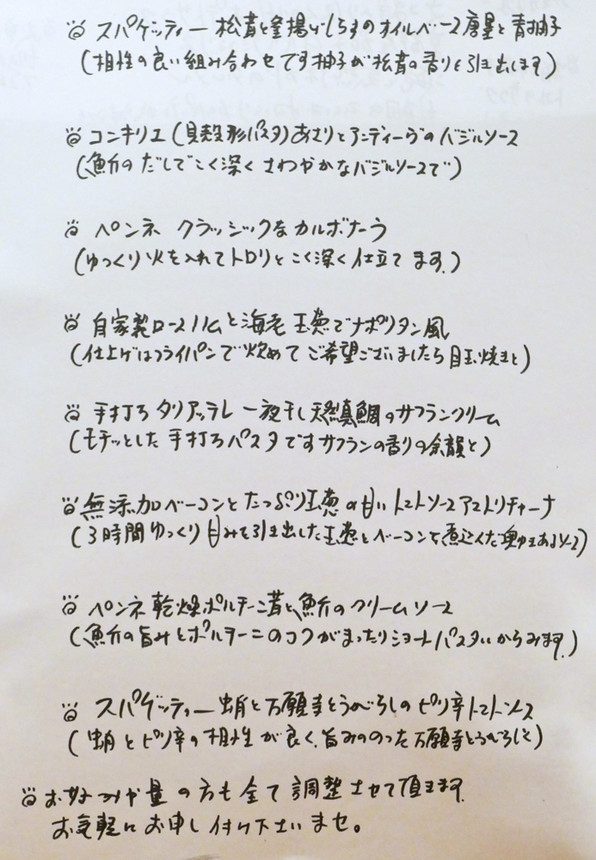 スパゲッティー 松茸と釜揚げしらすのオイルベース唐墨と青柚子
(相性の良い組み合わせです柚子が松茸の香りを引き出します)
コンキリエ (貝殻形パスタ) あさりとアンディーヴのバジルソース
(魚介のだしでこく深くさわやかなバジルソースで)
ペンネ クラッシックなカルボナーラ
(ゆっくり火を入れてトロリとこく深く仕立てます。)
自家製ロースハムと海老 玉葱でナポリタン風
(仕上げはフライパンで炒めて ご希望ございましたら目玉焼きと)
手打ち タリアッテレ 一夜干し天然真鯛のサフランクリーム
(モチッとした 手打ちパスタです サフランの香りの余韻と)
無添加ベーコンとたっぷり玉葱の甘いトマトソースアマトリチャーナ
(3時間ゆっくり甘みを引き出した玉葱とベーコンを煮込んだ奥ゆきあるソース)
ペンネ 乾燥ポルチーニ茸と魚介のクリームソース
(魚介の旨みとポルチーニのコクがまったりショートパスタにからみます。)
スパゲッティー 蛸と万願寺とうがらしのピリ辛トマトソース
(蛸とピリ辛の相性が良く、旨みののった万願寺とうがらしと)
お好みや量の方も全て調整させて頂きます。
お気軽にお申し付け下さいませ。